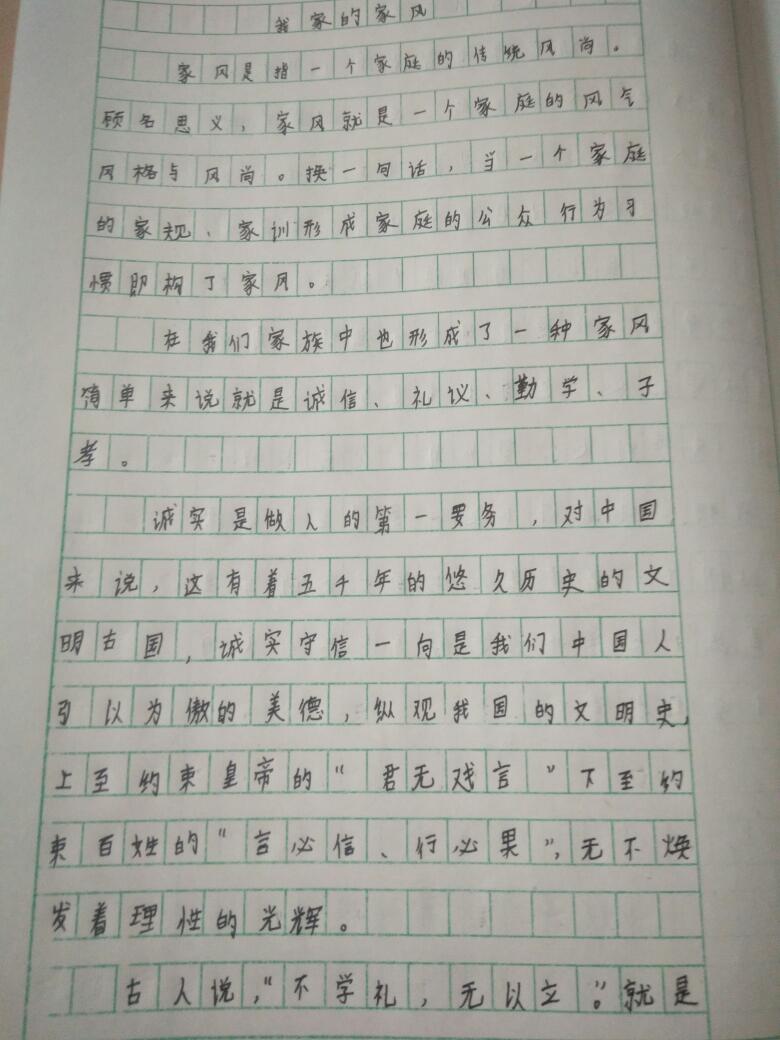 我家的家风
家风是指一个家庭的传统风尚。
顾名思义，家风就是一个家庭的风气
风格与风尚。换一句话，当一个家庭
的家规、家训形成家庭的公众行为习
惯即构了家风。
在我们家族中也形成了一种家风
简单来说就是诚信、礼议、勤学、子
孝。
诚实是做人的第一要务，对中国
来说，这有着五千年的悠久历史的文
明古国，诚实守信一向是我们中国人
引以为傲的美德，纵观我国的文明史，
上至约束皇帝的“君无戏言”下至约
束百姓的“言必信、行必果”，无不焕
发着理性的光辉。
古人说，“不学礼，无以立。”就是